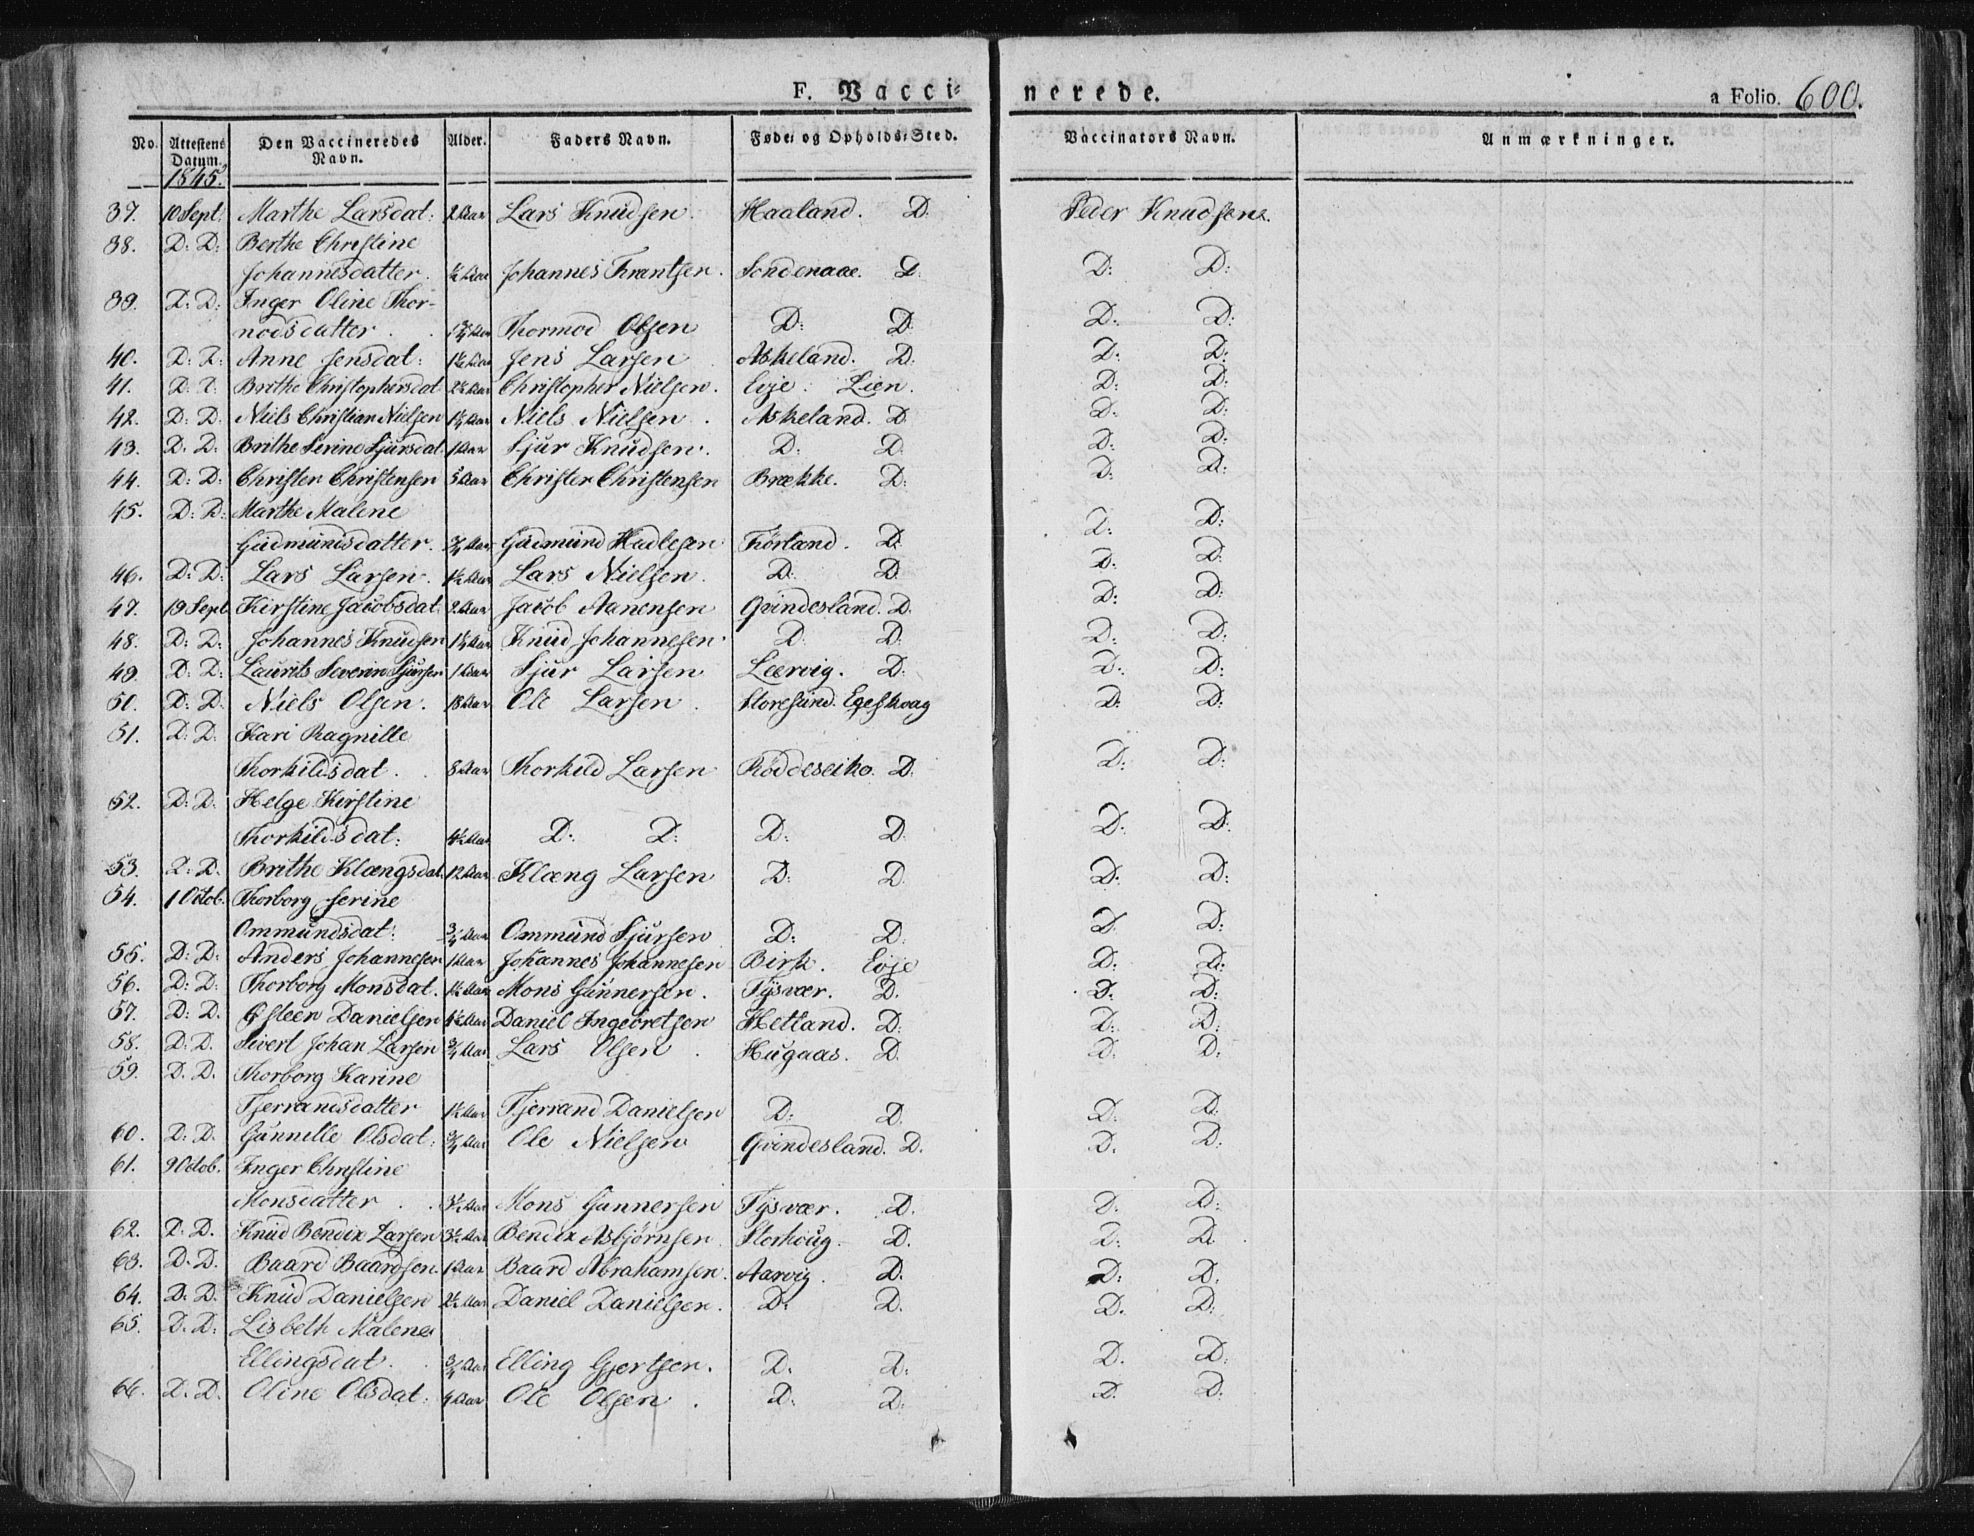 F. Vacci-
nerede.
a Folio. 600.
No. Attestens Datum. Den Vaccineredes Navn. Alder. Faders Navn. Føde- og Opholds-Sted. Vaccinators Navn. Anmærkninger.
1845.
37. 10 Sept. Marthe Larsdat: 2 Aar Lars Knudsen. Haaland. D. Peder Knudsen.
38. D: D: Berthe Christine
Johannesdatter. ½ Aar Johannes Frantsen. Søndenaae. D. D: D:
39. D: D: Inger Oline Thor-
modsdatter. Aar Thormod Olsen D: D. D: D:
40. D: D: Anne Jensdat: 1½ Aar Jens Larsen Askeland. D. D: D:
41. D: D: Berthe Christophersdat 2½ Aar Christopher Nielsen. Evje. Lien. D: D:
42. D: D: Niels Christian Nielsen 1½ Aar Niels Nielsen. Askeland. D. D: D:
43. D: D: Brithe Serine Sjursdat. 1 Aar Sjur Knudsen. D: D. D: D:
44. D: D: Christen Christensen 5 Aar Christen Christensen Brække. D: D: D:
45. D: D: Marthe Malene
Gudmundsdatter. ¾ Aar Gudmund Hadlesen Førland. D. D: D:
46. D: D: Lars Larsen. 1½ Aar Lars Nielsen. D: D. D: D:
47. 19 Sept Kirstine Jacobsdat. 2 Aar Jacob Aanensen Qvindesland. D. D: D:
48. D: D: Johannes Knudsen 1½ Aar Knud Johannesen. D: D: D: D:
49. D: D: Laurits Severin Sjursen 1 Aar Sjur Larsen Leervig. D. D: D:
50. D: D. Niels Olsen. 18 Aar Ole Larsen. Storesund. D: D:
51. D: D. Kari Ragnille
Thorkildsdat. 8 Aar Thorkild Larsen D. D: D:
52. D: D. Helge Kirstine
Thorkildsdat: 4½ Aar D: D: D: D. D: D:
53. D: D. Brithe Klængsdat. 12 Aar Klæng Larsen D: D. D: D:
54. 1 Octob. Thorborg Serine
Ommundsdat: ¾ Aar Ommund Sjursen D: D. D: D:
55. D: D: Anders Johannesen 1 Aar Johannes Johannesen Birk. Evje D: D:
56. D: D: Thorborg Monsdat. 1½ Aar Mons Gunnersen. Tysvær. D. D: D:
57. D: D. Østeen Danielsen 1½ Aar Daniel Ingebretsen Hetland. D: D: D:
58. D: D. Sivert Johan Larsen ¾ Aar Lars Olsen. Hugaas. D. D: D:
59. D. D. Thorborg Karine
Tjerrandsdatter 1½ Aar Tjerrand Danielsen D: D. D: D:
60. D: D. Gunnille Olsdat: ¾ Aar Ole Nielsen Qvindesland. D. D. D:
61. 9 Octob. Inger Christine
Monsdatter. 3½ Aar Mons Gunnersen Tysvær. D. D: D:
62. D: D. Knud Bendix Larsen 3½ Aar Bendix Asbjørnsen. Storhoug. D. D: D.
63. D. D. Baard Baardsen. 1 Aar Baard Abrahamsen. Aarvig. D. D: D.
64. D: D. Knud Danielsen 2½ Aar Daniel Danielsen. D: D. D. D:
65. D. D: Lisbeth Malene
Ellingsdat. ¾ Aar Elling Gjertsen. D. D. D. D:
66. D. D. Oline Olsdat. 4 Aar Ole Olsen. D. D. D. D: